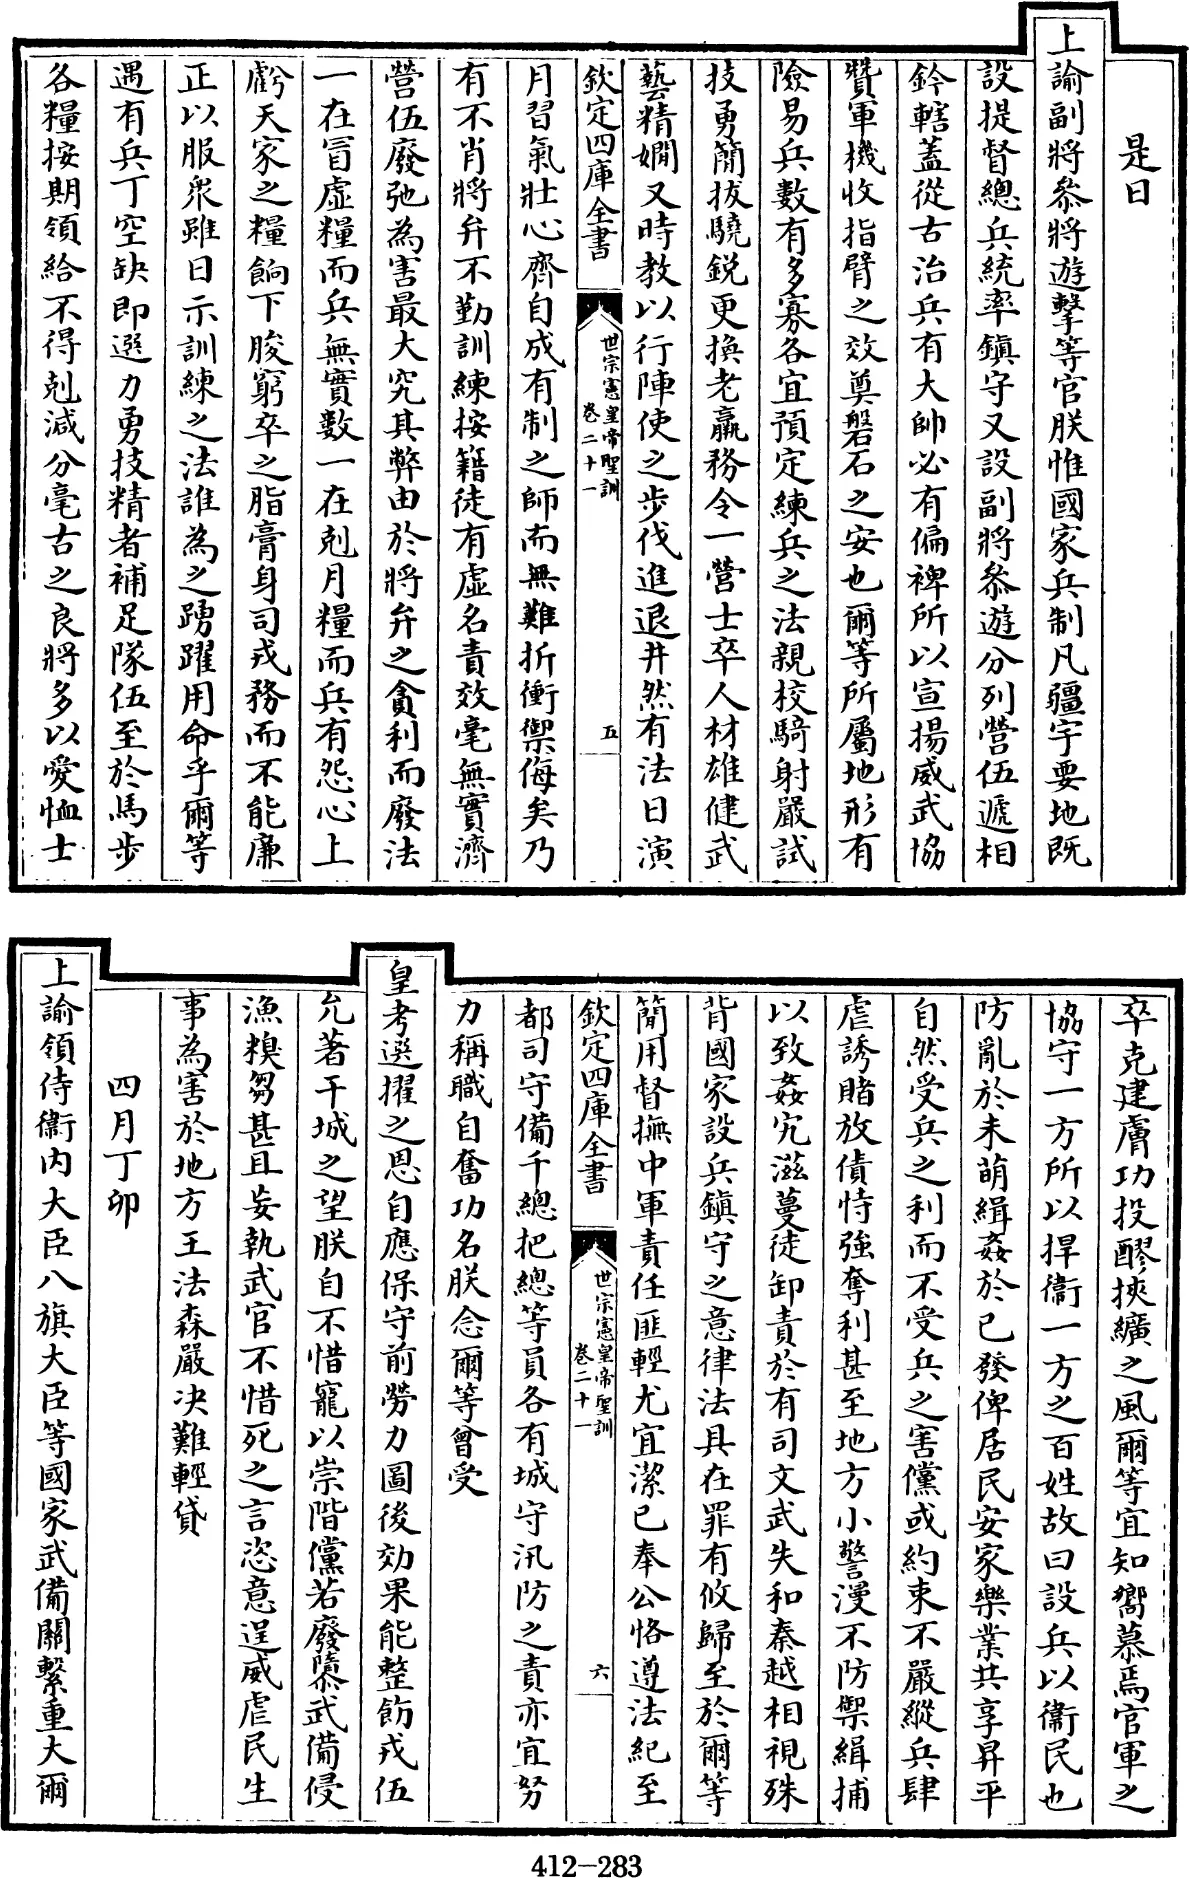 是日
上諭副將參將遊擊等官朕惟國家兵制凡疆宇要地既
設提督總兵統率鎮守又設副將參遊分列營伍遞相
鈐轄蓋從古治兵有大帥必有偏裨所以宣揚威武協
贊軍機收指臂之效奠磐石之安也爾等所屬地形有
險易兵數有多寡各宜預定練兵之法親校騎射嚴試
技勇簡拔驍銳更換老羸務令一營士卒人材雄健武
藝精嫻又時教以行陣使之步伐進退井然有法日演
欽定四庫全書
世宗憲皇帝聖訓
卷二十一
五
月習氣壯心齊自成有制之師而無難折衝禦侮矣乃
有不肖將弁不勤訓練按籍徒有虛名責效毫無實濟
營伍廢弛為害最大究其弊由於將弁之貪利而廢法
一在冒虛糧而兵無實數一在剋月糧而兵有怨心上
虧天家之糧餉下朘窮卒之脂膏身司戎務而不能廉
正以服衆雖日示訓練之法誰為之踴躍用命乎爾等
遇有兵丁空缺即選力勇技精者補足隊伍至於馬步
各糧按期領給不得剋減分毫古之良將多以愛恤士
卒克建膚功投醪挾纊之風爾等宜知嚮慕焉官軍之
協守一方所以捍衛一方之百姓故曰設兵以衛民也
防亂於未萌緝姦於已發俾居民安家樂業共享昇平
自然受兵之利而不受兵之害儻或約束不嚴縱兵肆
虐誘賭放債恃強奪利甚至地方小警漫不防禦緝捕
以致姦宄滋蔓徒卸責於有司文武失和秦越相視殊
背國家設兵鎮守之意律法具在罪有攸歸至於爾等
簡用督撫中軍責任匪輕尤宜潔已奉公恪遵法紀至
欽定四庫全書
世宗憲皇帝聖訓
卷二十一
六
都司守備千總把總等員各有城守汛防之責亦宜努
力稱職自奮功名朕念爾等曾受
皇考選擢之恩自應保守前勞力圖後効果能整飭戎伍
允著干城之望朕自不惜寵以崇階儻若廢隳武備侵
漁糗芻甚且妄執武官不惜死之言恣意逞威虐民生
事為害於地方王法森嚴决難輕貸
四月丁卯
上諭領侍衛內大臣八旗大臣等國家武備關繫重大爾
412-283